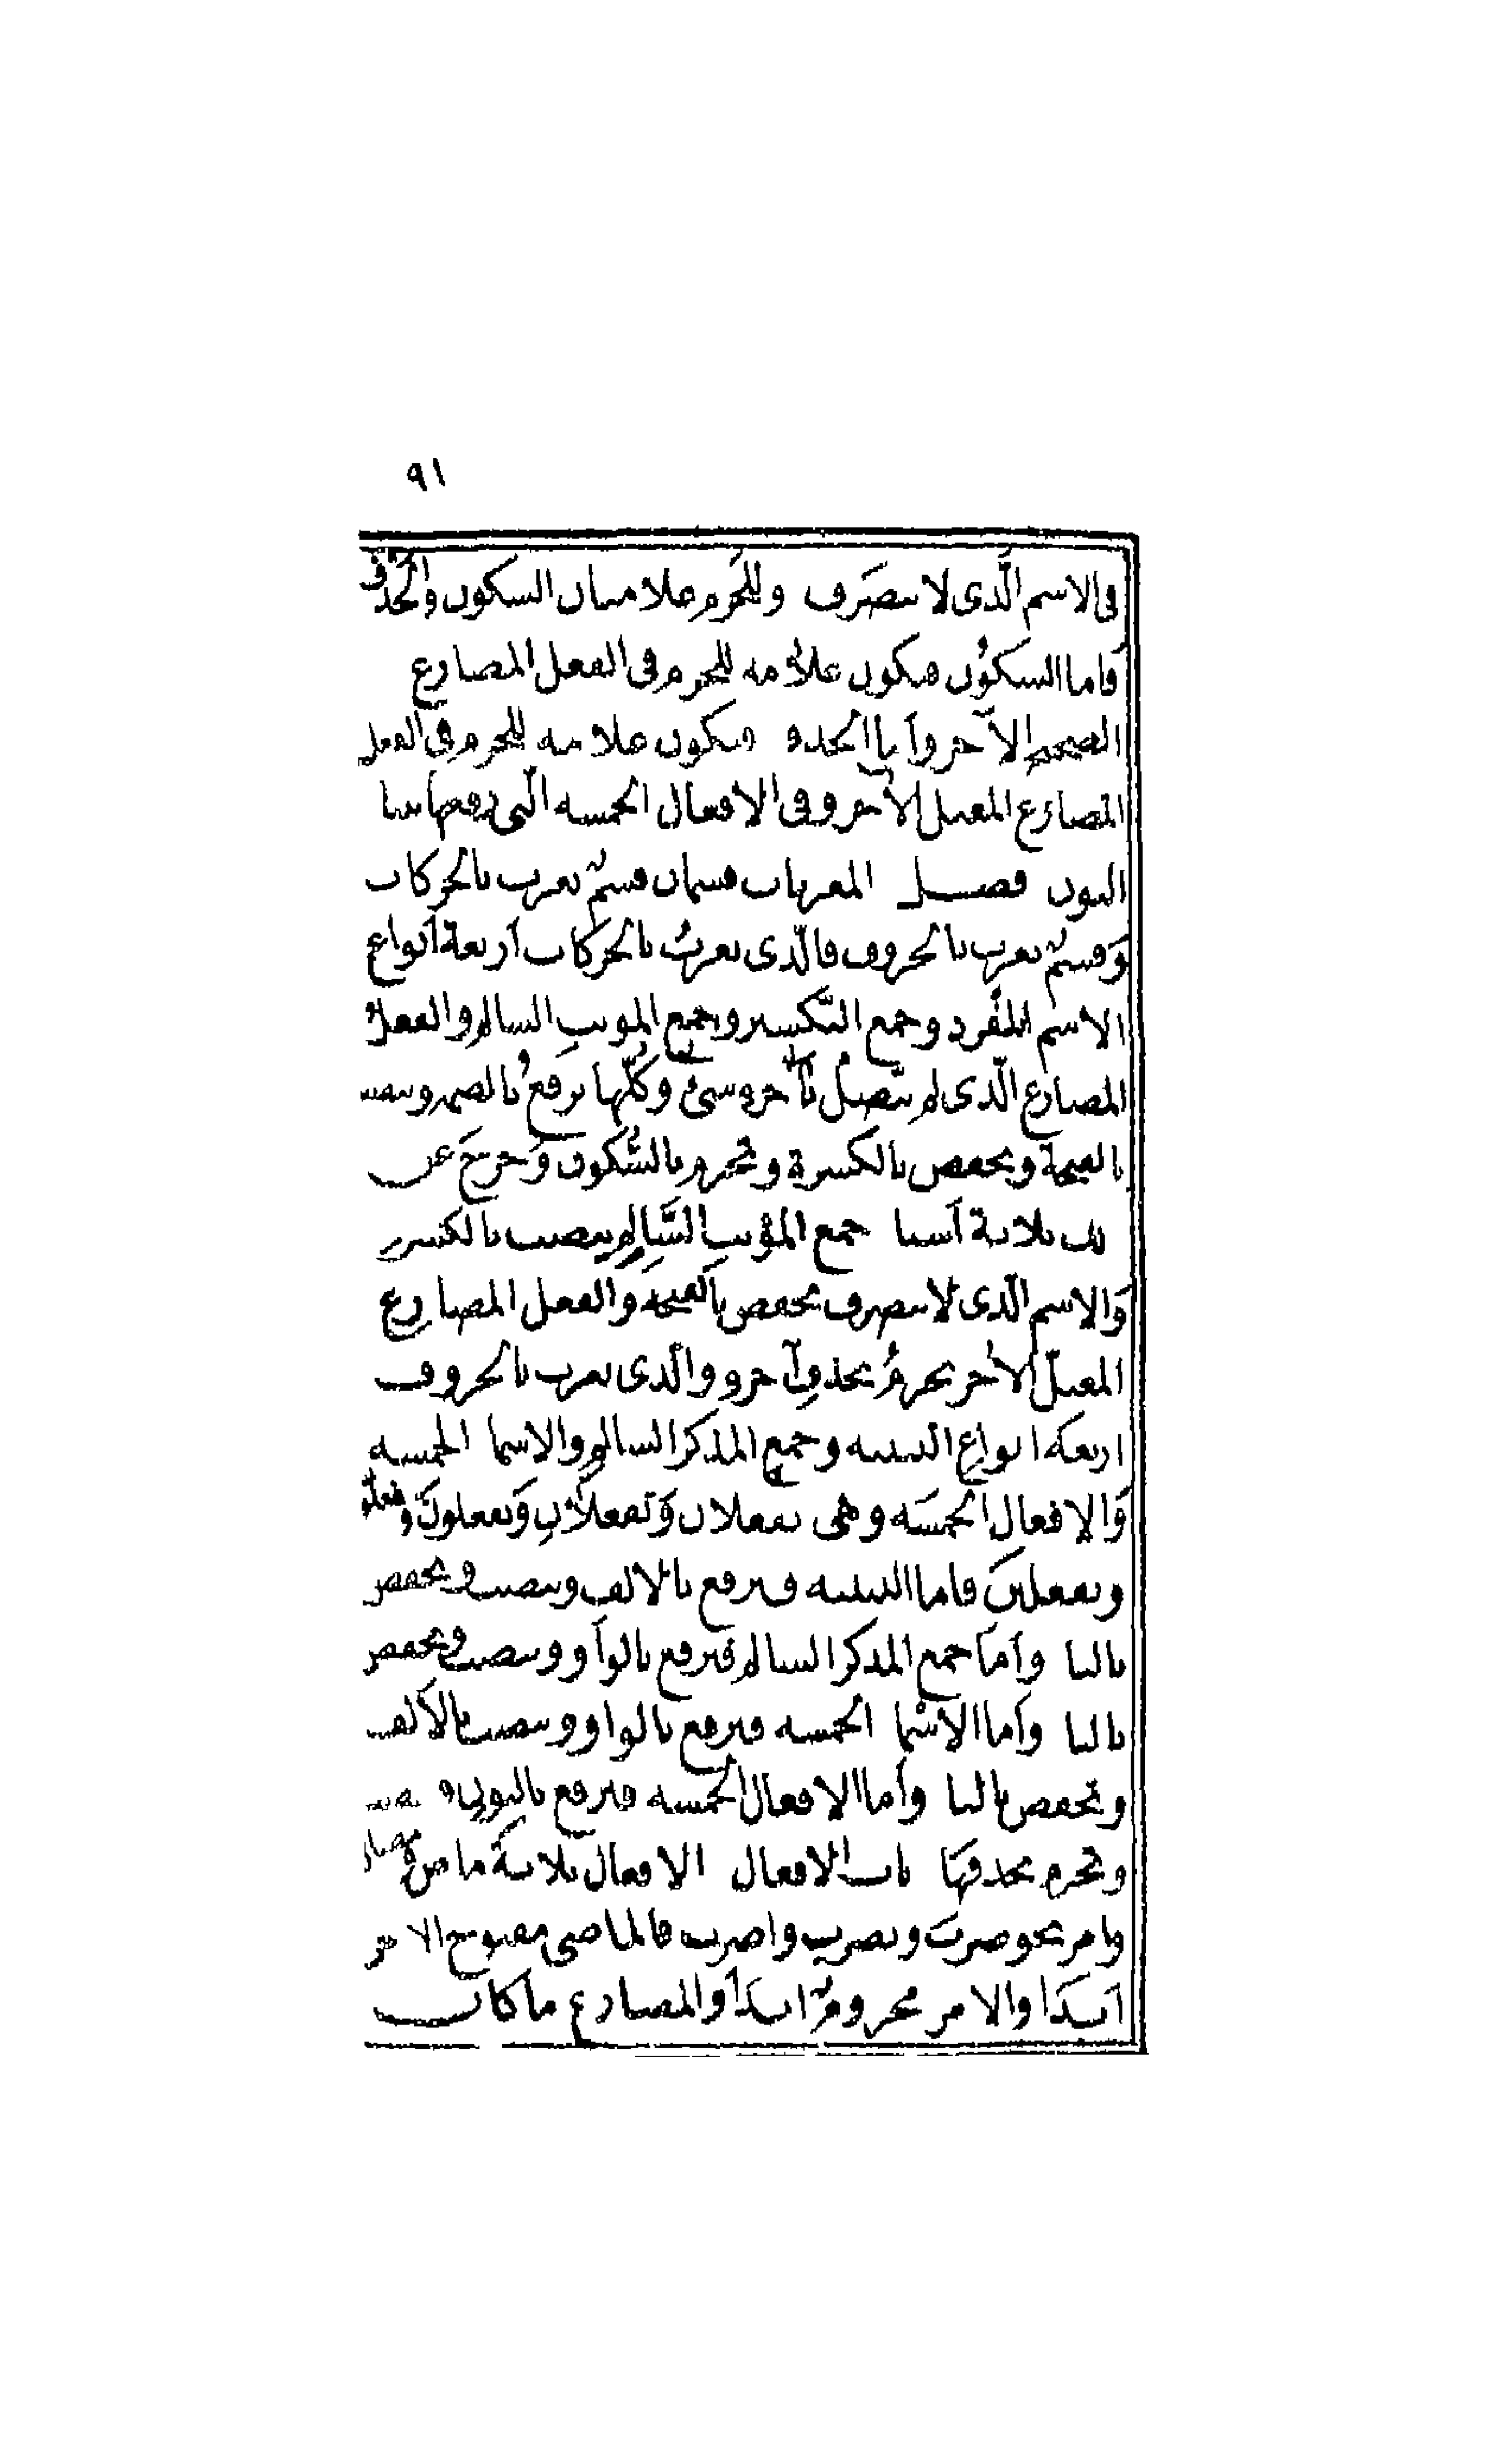 ٩١
فى الاسم الّذى لا ينصَرف وللجَزم علامتان السكون والحذف
فَاما السكوُن فيكون علاَمه للجزم فى الفعل المضارع
الصحيح الآخر وأما الحذف فيكون علامه للجزم فى الفعل
المضارع المعتل الآخر وفى الافعال الخمسه الّتى رفعها بثبا
النون فصل المعربات قسمان قسمٌ يعرب بالحَركات
وَقسمٌ يعرب بالحروف فالّذى يعربُ بالحَركات أربعة أنواع
الاسم المفرد وجمع التّكسير وجمع المونثِ السالم والفعلُ
المضارع الّذى لم يتّصل بآخره شىءٌ وكُلّها ترفعُ بالضمه وتنصب
بالفتحة وتخفض بالكسرة وتجزم بالسُّكون وَخرجَ عن
ذلك ثلاثة أشيا جمع المؤنث السَّالم ينصب بالكسره
وَالاسم الّذى لا ينصرف يخفض بالفتحه والفعل المضارع
المعتلّ الآخر يجزمُ بحذفِ آخره والّذى يعرب بالحروف
اربعَه انواع التثنيه وجمع المذكر السالم والاسما الخمسه
وَالافعال الخمسَه وهى يفعلان وَتفعلاَنِ وَيفعلونَ وتفعلو
وتفعلينَ فاما التثنيه فترفع بالالف وتنصب وتخفض
باليا وأمّا جمع المذكر السالم فيرفع بالواو وينصب ويخفض
باليا وأما الأسْما الخمسه فترفع بالواو وتنصب بالألف
وتخفض باليا وأما الافعال الخمسه فترفع بالنونِ و تنصب
وتجزم بحذفهَا باب الافعال الافعال ثلاثَة ماضٍ ومضارع
وامر نحو ضربَ ويضرب واضرب فالماضى مفتوح الاخر
أبَدَا والامر مجزومٌ ابدًا والمضارع ما كان